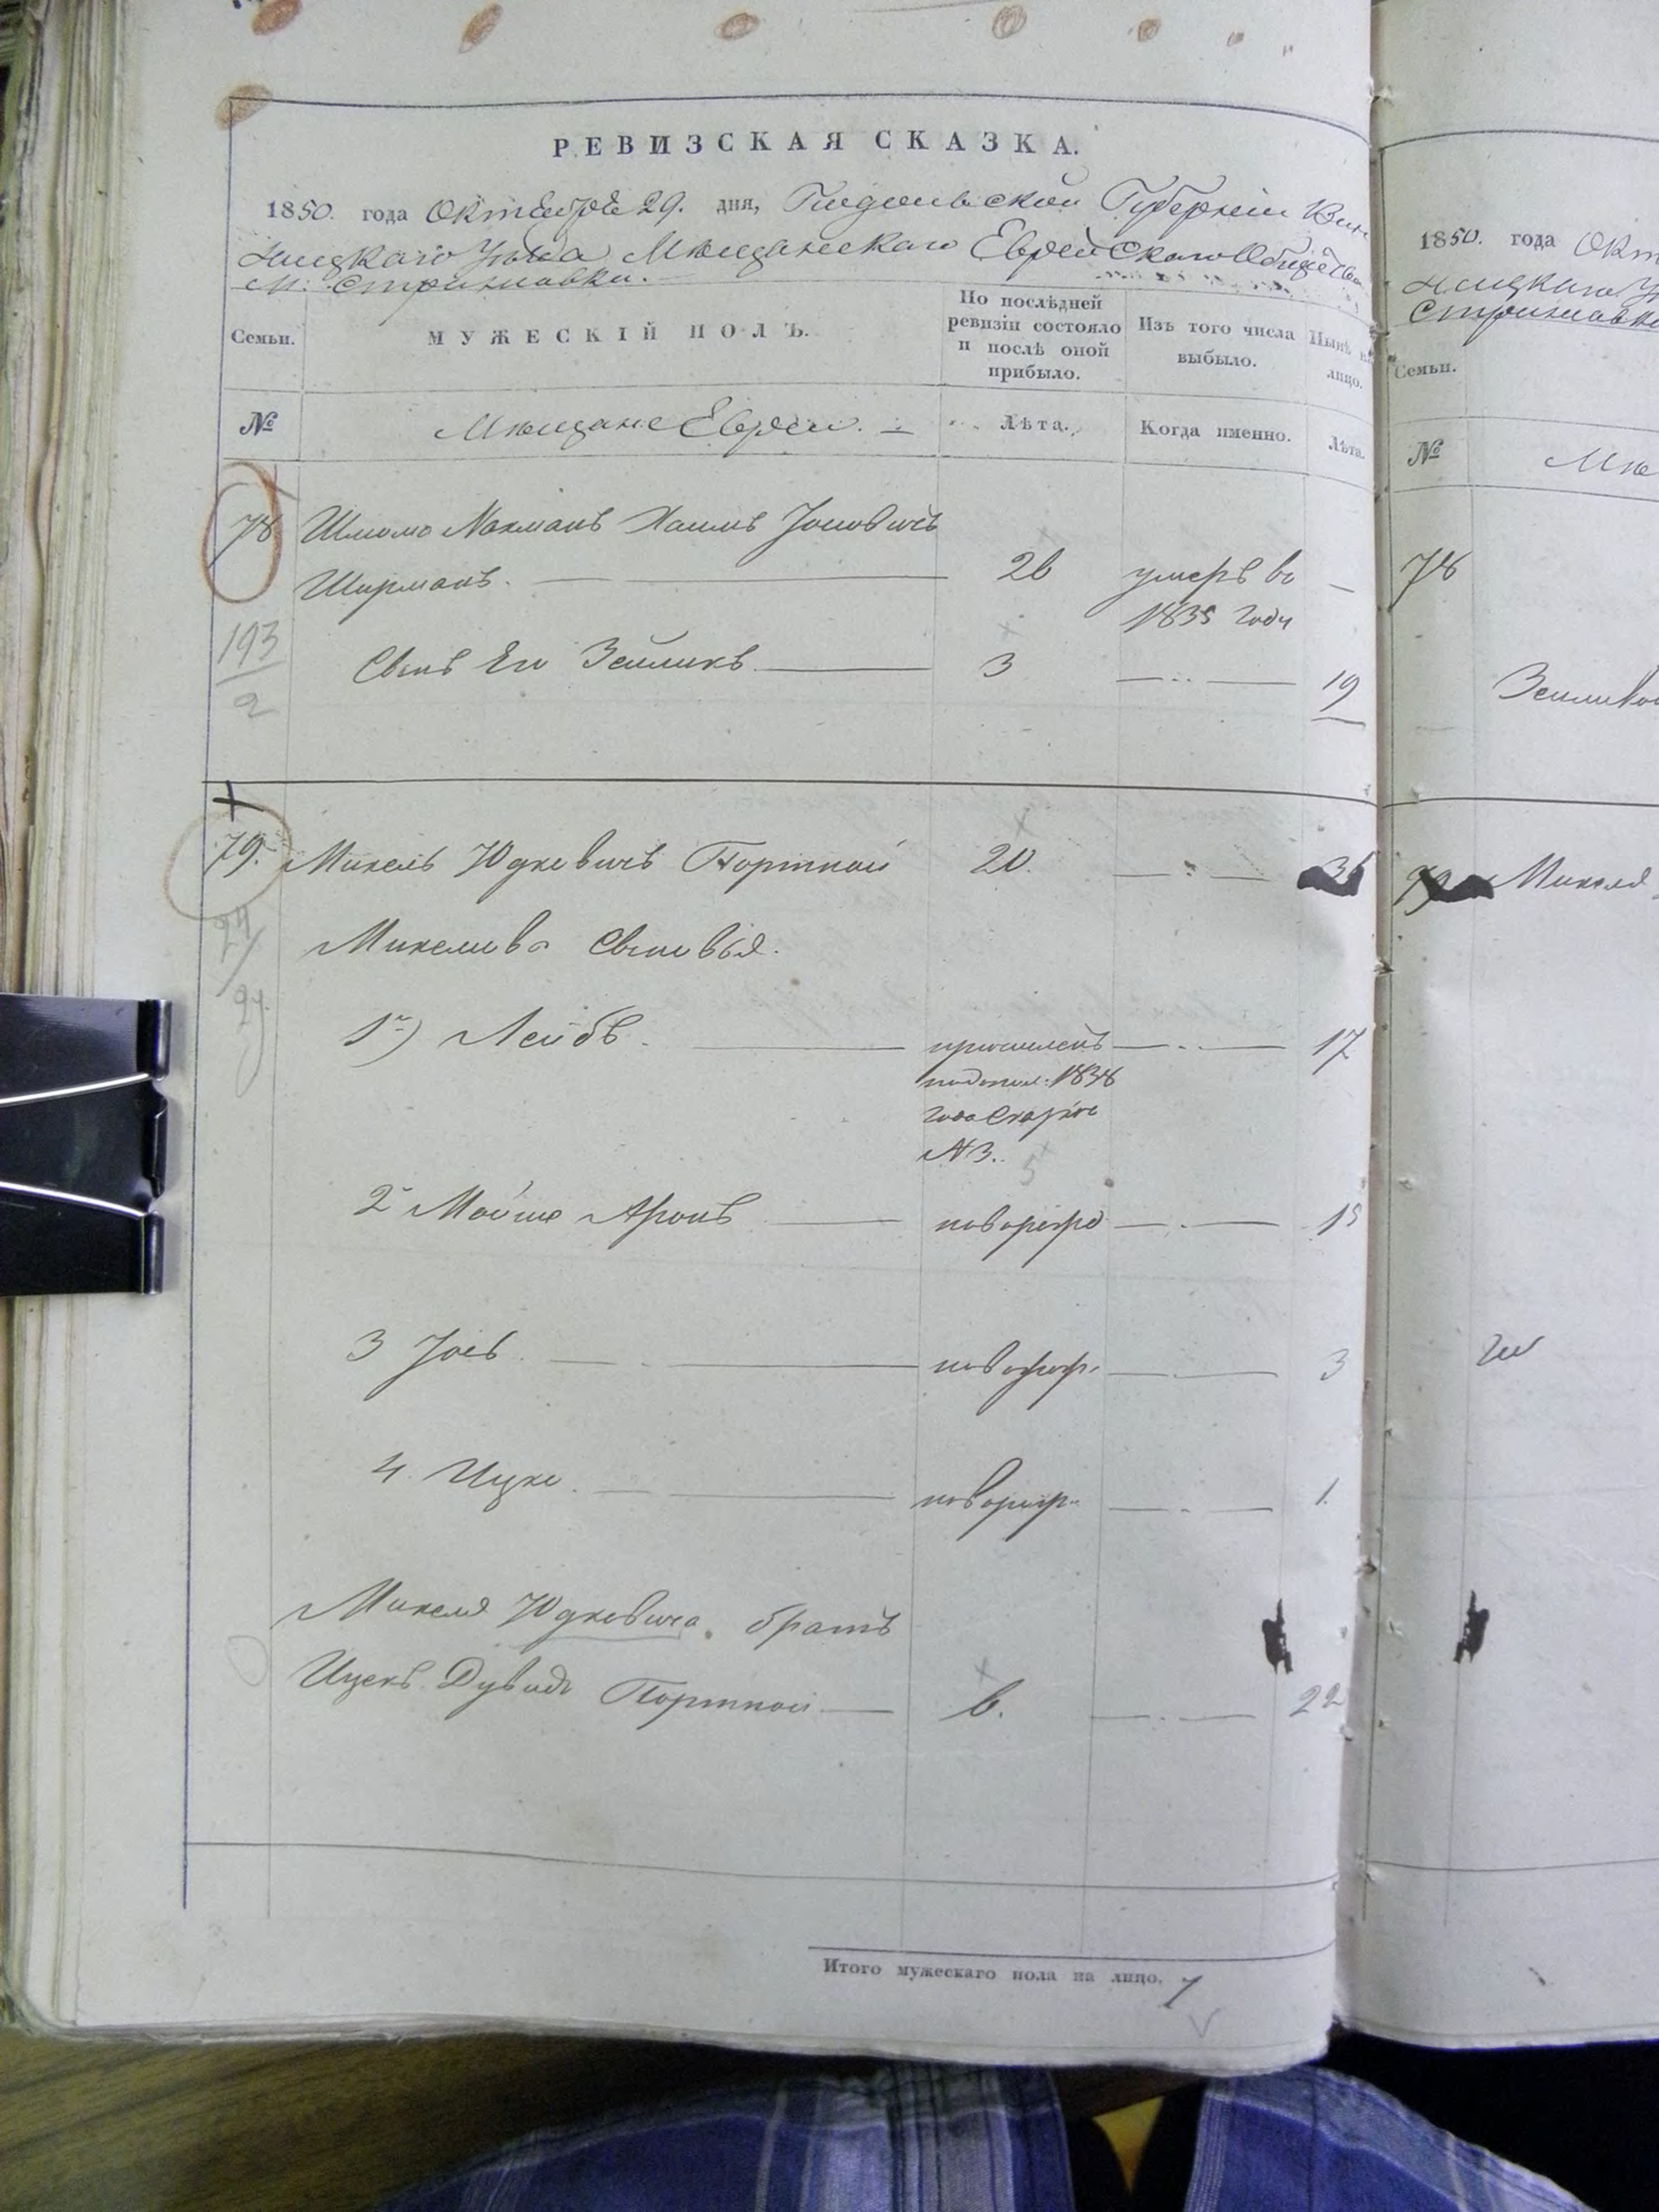 РЕВИЗСКАЯ СКАЗКА.
1850. года Октября 29. дня, Подольской Губерніи Вин
ницкаго Уѣзда Мѣщанскаго Еврейскаго Общества
М: Стрижавки.
Семьи.
МУЖЕСКІЙ ПОЛЪ.
По послѣдней ревизіи состояло и послѣ оной прибыло.
Изъ того числа выбыло.
Нынѣ на лицо.
№
Мѣщане Евреи.
Лѣта.
Когда именно.
Лѣта.
78 Шлиома Нахманъ Хаимъ Іосиовичъ
Ширманъ. 26 умеръ въ
1835 году
193
2
Сынъ Его Зейликъ 3 19
79. Михель Юдковичъ Портной 20. 36
Михелиова сыновья.
24
24
1й) Лейбъ. 17
1838
года
№ 3.
5
2й Мойше Аронъ новорожд 15
3 Іосъ новорож. 3
4. Ицко. новорож. 1.
Михеля Юдковича братъ
Ицекъ Дувидъ Портной 6. 22
Итого мужескаго пола на лицо. 7
1850. года Окт
ницкаго У
Стрижавк
Семьи.
№
Мѣ
78
79 Михеля